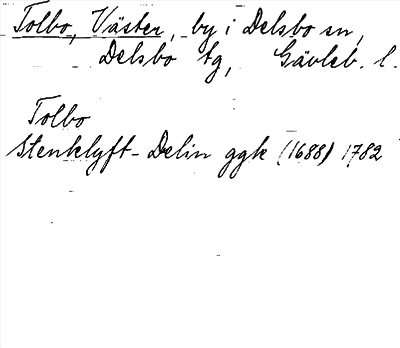 Tolbo, Väster, by i Delsbo sn,
Delsbo tg, Gävleb. l.
Tolbo
Stenklyft-Delin ggk (1688) 1782